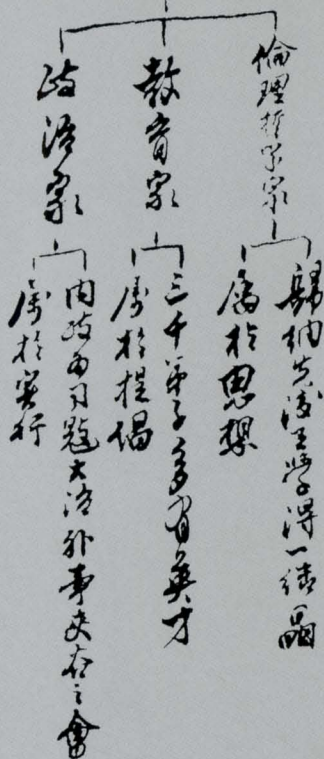 倫理哲學家
歸納先後王學得一結晶
屬於思想
教育家
三千弟子多有英才
屬於提倡
政治家
內政由司寇大治外事夾谷之會
屬於實行